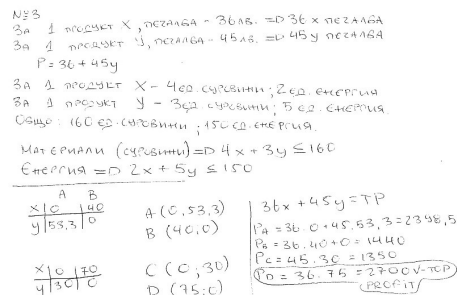 №3
За 1 продукт X, печалба - 36лв. => 36x печалба
За 1 продукт Y, печалба - 45лв. => 45y печалба
P = 36 + 45y
За 1 продукт X - 4ед. суровини; 2ед. енергия
За 1 продукт Y - 3ед. суровини; 5 ед. енергия.
Общо: 160 ед. суровини; 150 ед. енергия.
Материали (суровини) => 4x + 3y ≤ 160
Енергия => 2x + 5y ≤ 150
A B
x | 0 | 40
y | 53,3 | 0
A (0, 53,3)
B (40, 0)
x | 0 | 70
y | 30 | 0
C (0; 30)
D (75; 0)
36x + 45y = TP
PA = 36.0 + 45.53,3 = 2398,5
PB = 36.40 + 0 = 1440
PC = 45.30 = 1350
PD = 36.75 = 2700 V-TOP
PROFIT